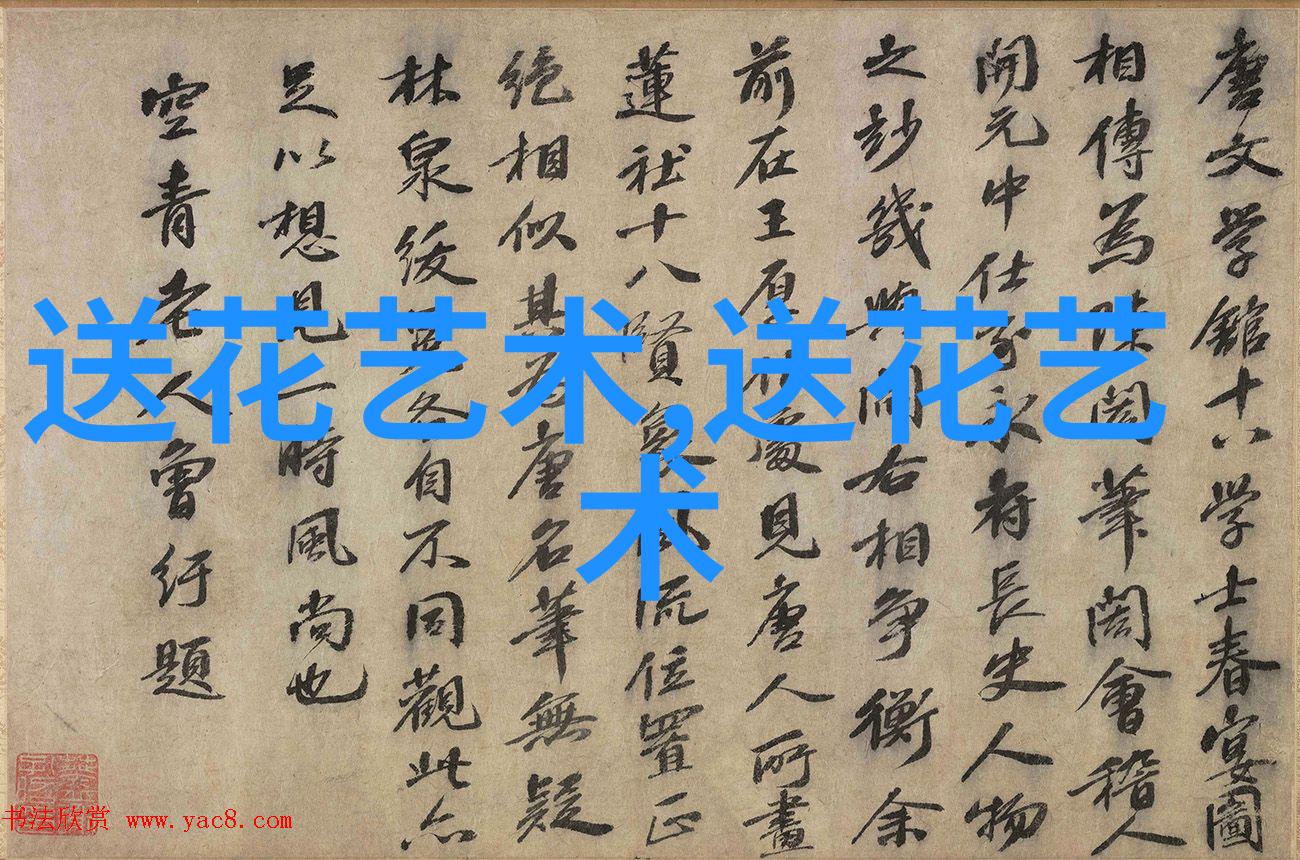 唐文学館十八学士春宴圖
相傳為陳閎筆閎會稽人
開元中仕家永府長史人物
之妙幾與閻右相爭衡余
前在王原叔處見唐人所畫
蓮社十八賢象風流位置正
絶相似其為唐名筆無疑
林泉緩步各自不同觀此亦
足以想見一時風尚也
空青老人曾紆題
送花艺术,送花艺
术
书法欣赏 www.yac8.com